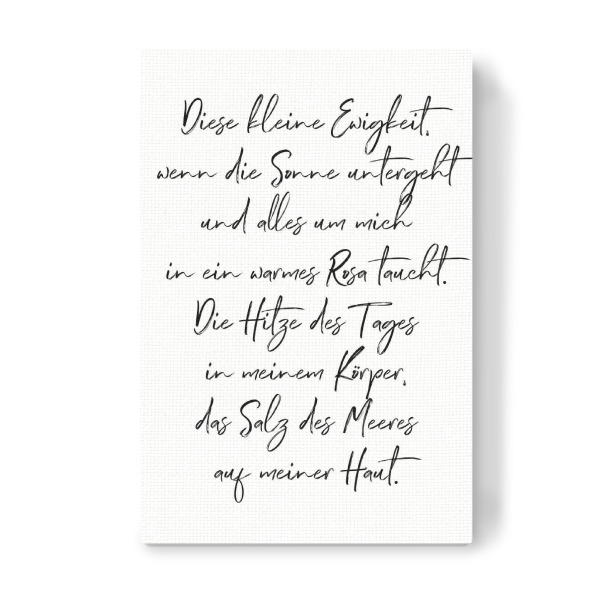 Diese kleine Ewigkeit,
wenn die Sonne untergeht
und alles um mich
in ein warmes Rosa taucht.
Die Hitze des Tages
in meinem Körper,
das Salz des Meeres
auf meiner Haut.